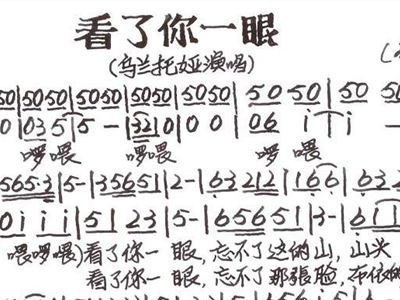 看了你一眼
(乌兰托娅演唱)
50|5050|5050|5050|5050|5050|50 50
0|035|5-|3210|00|06 i|i-
啰喂 啰喂 啰喂
565·3|5-|35651|2-|63212|166|63
0iii|51 23|5-|65651|3-|
喂啰喂)看了你一 眼,忘不了这俩山,山头
看着你一 眼,忘不了那張脸,